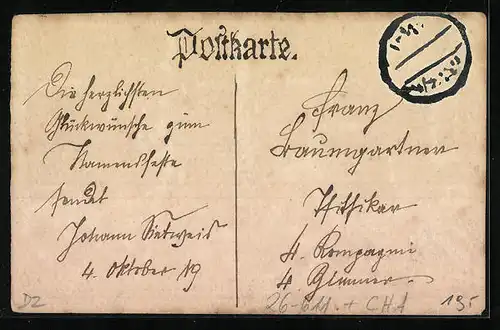 Postkarte.
Die herzlichsten
Glückwünsche zum
Namensfeste
sendet
Johann
4. Oktober 19
Franz
Baumgartner
4. Kompagni
4.
DZ
26-611 + CHA
195